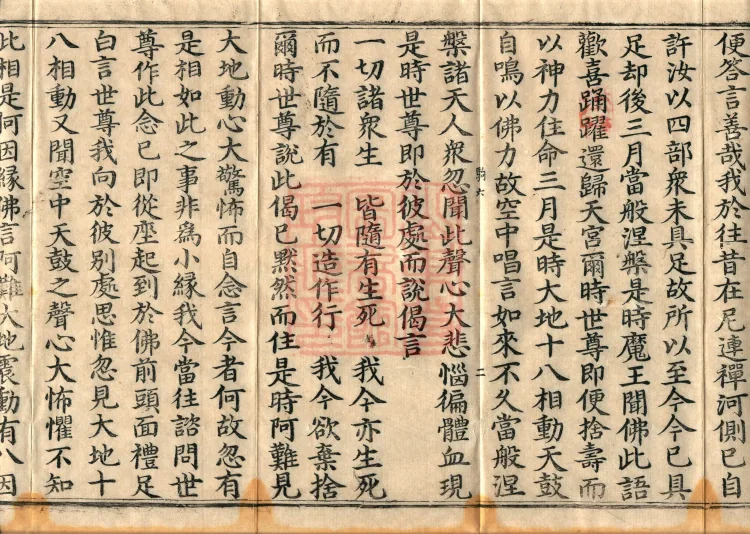 便答言善哉我於往昔在尼連禪河側已自
許汝以四部衆未具足故所以至今今已具
足却後三月當般涅槃是時魔王聞佛此語
歡喜踊躍還歸天宮爾時世尊即便捨壽而
以神力住命三月是時大地十八相動天鼓
自鳴以佛力故空中唱言如來不久當般涅
二
槃諸天人衆忽聞此聲心大悲惱徧體血現
是時世尊即於彼處而說偈言
一切諸衆生 皆隨有生死 我今亦生死
而不隨於有 一切造作行 我今欲棄捨
爾時世尊說此偈已默然而住是時阿難見
大地動心大驚怖而自念言今者何故忽有
是相如此之事非爲小緣我今當往諮問世
尊作此念已即從座起到於佛前頭面禮足
白言世尊我向於彼別處思惟忽見大地十
八相動又聞空中天鼓之聲心大怖懼不知
此相是何因緣佛言阿難大地震動有八因